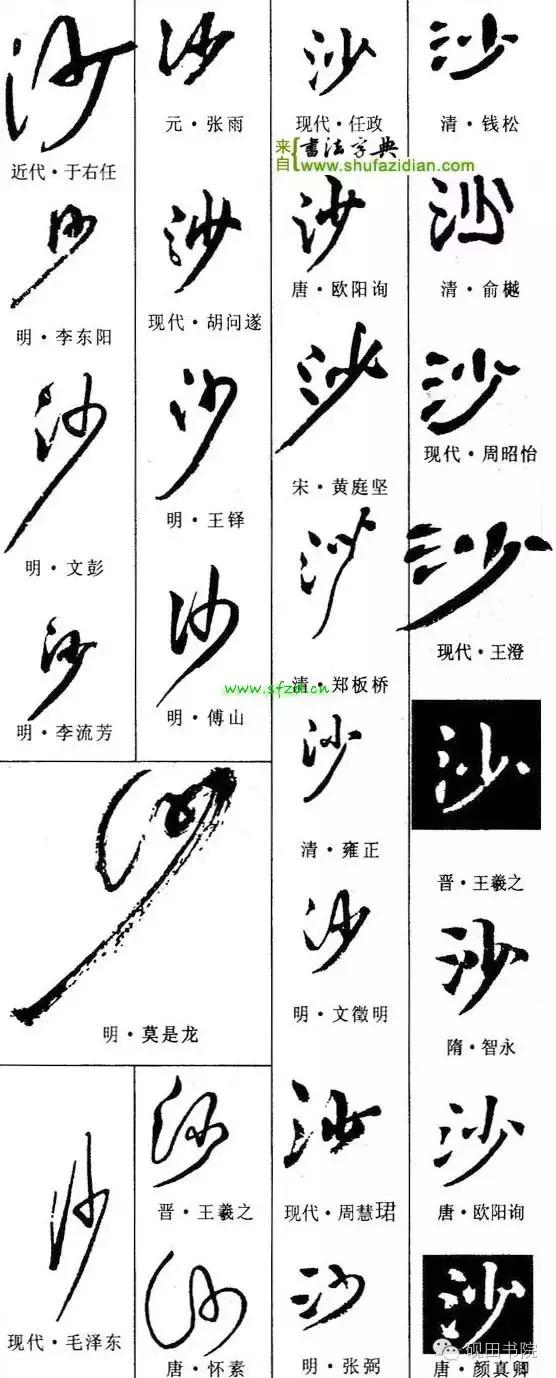 沙
近代·于右任
沙
明·李东阳
沙
明·文彭
沙
明·李流芳
沙
元·张雨
沙
现代·胡问遂
沙
明·王铎
沙
明·傅山
沙
明·莫是龙
沙
现代·毛泽东
沙
晋·王羲之
沙
唐·怀素
沙
现代·任政
来自{书法字典
www.shufazidian.com
沙
唐·欧阳询
沙
宋·黄庭坚
沙
清·郑板桥
www.sfzd.cn
沙
清·雍正
沙
明·文徵明
沙
现代·周慧珺
沙
明·张弼
沙
清·钱松
沙
清·俞樾
沙
现代·周昭怡
沙
现代·王澄
沙
晋·王羲之
沙
隋·智永
沙
唐·欧阳询
沙
唐·颜真卿
砚田书院